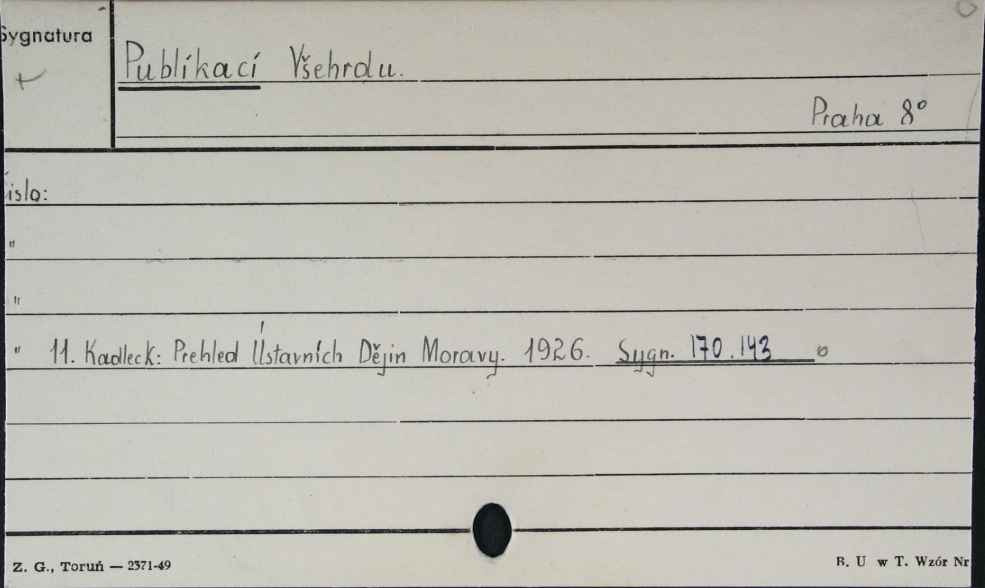 Sygnatura
Publikací Všehrdu.
Praha 8°
islo:
"
"
" 11. Kadleck: Prehled Ústavních Dějin Moravy. 1926. Sygn. 170.143
Z. G., Toruń — 2371-49
B. U w T. Wzór Nr